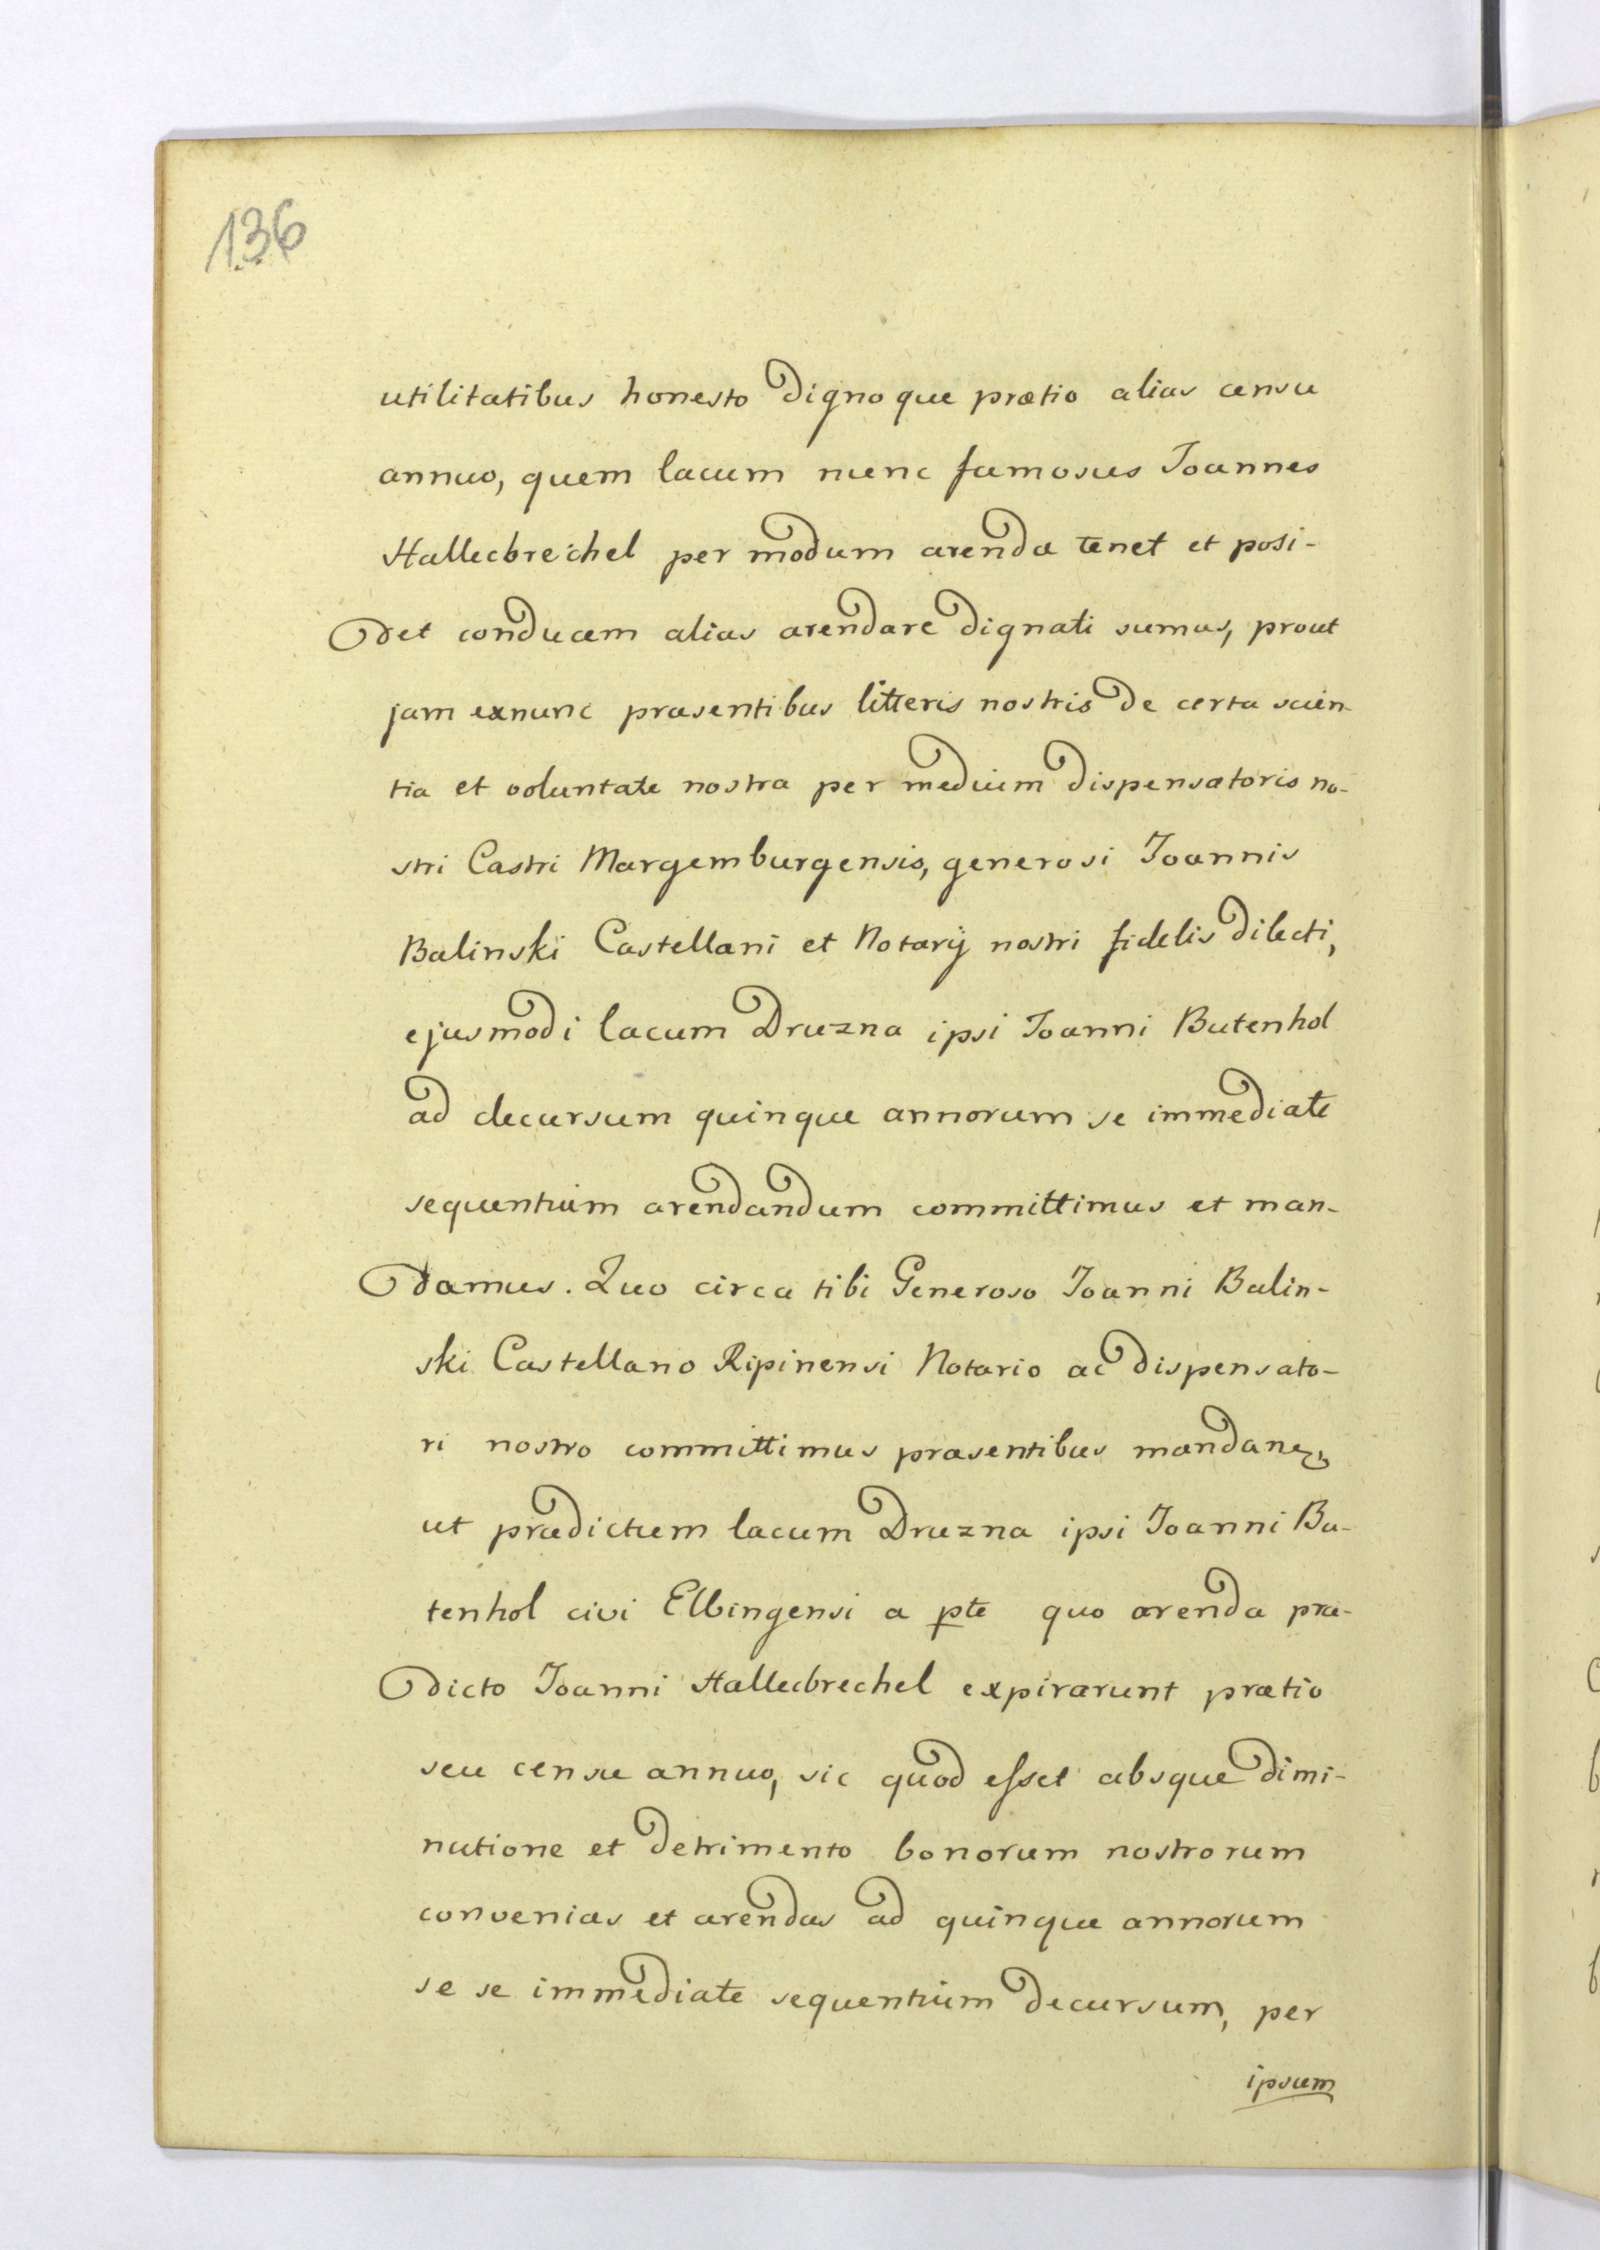 136
utilitatibus honesto dignoque prætio alias censu
annuo, quem lacum nunc famosus Joannes
Hallecbrechel per modum arendæ tenet et posi-
det conducem alias arendare dignati sumus, prout
jam exnunc præsentibus litteris nostris de certa scien-
tia et voluntate nostra per medium dispensatoris no-
stri Castri Margemburgensis, generosi Joannis
Balinski Castellani et Notarij nostri fidelis dilecti,
ejusmodi lacum Druzna ipsi Joanni Butenhol
ad decursum quinque annorum se immediate
sequentium arendandum committimus et man-
damus. Quo circa tibi Generoso Joanni Balin-
ski Castellano Ripinensi Notario ac dispensato-
ri nostro committimus præsentibus mandan
ut prædictum lacum Druzna ipsi Joanni Bu-
tenhol civi Elbingensi a pte quo arenda præ-
dicto Joanni Hallecbrechel expirarunt prætio
seu censu annuo, sic quod esset absque dimi-
nutione et detrimento bonorum nostrorum
convenias et arendas ad quinque annorum
se se immediate sequentium decursum, per
ipsum